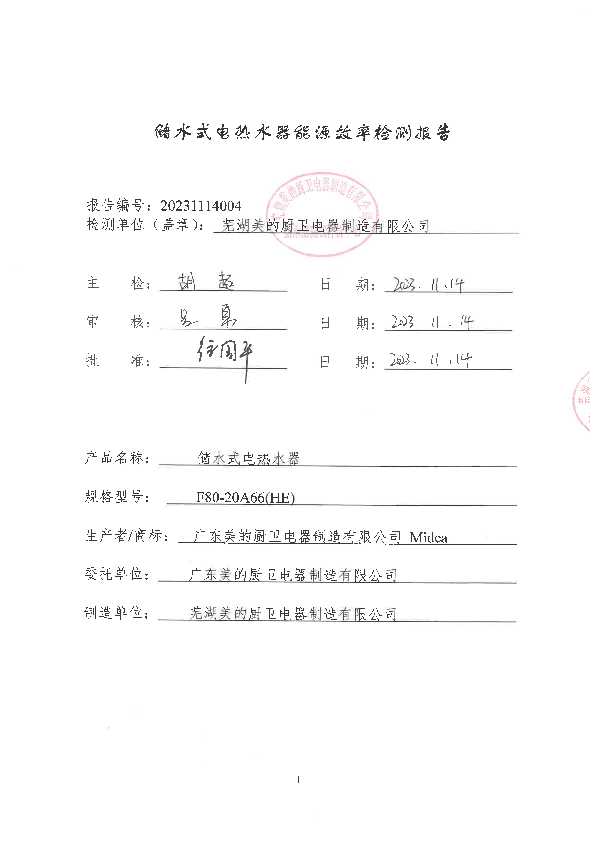 储水式电热水器能源效率检测报告
报告编号：20231114004
检测单位（盖章）：芜湖美的厨卫电器制造有限公司
主 检： 胡 日 期：2023.11.14
审 核： 日 期：2023 11.14
批 准：徐国平 日 期：2023.11.14
产品名称：储水式电热水器
规格型号：F80-20A66(HE)
生产者/商标：广东美的厨卫电器制造有限公司 Midea
委托单位：广东美的厨卫电器制造有限公司
制造单位：芜湖美的厨卫电器制造有限公司
1